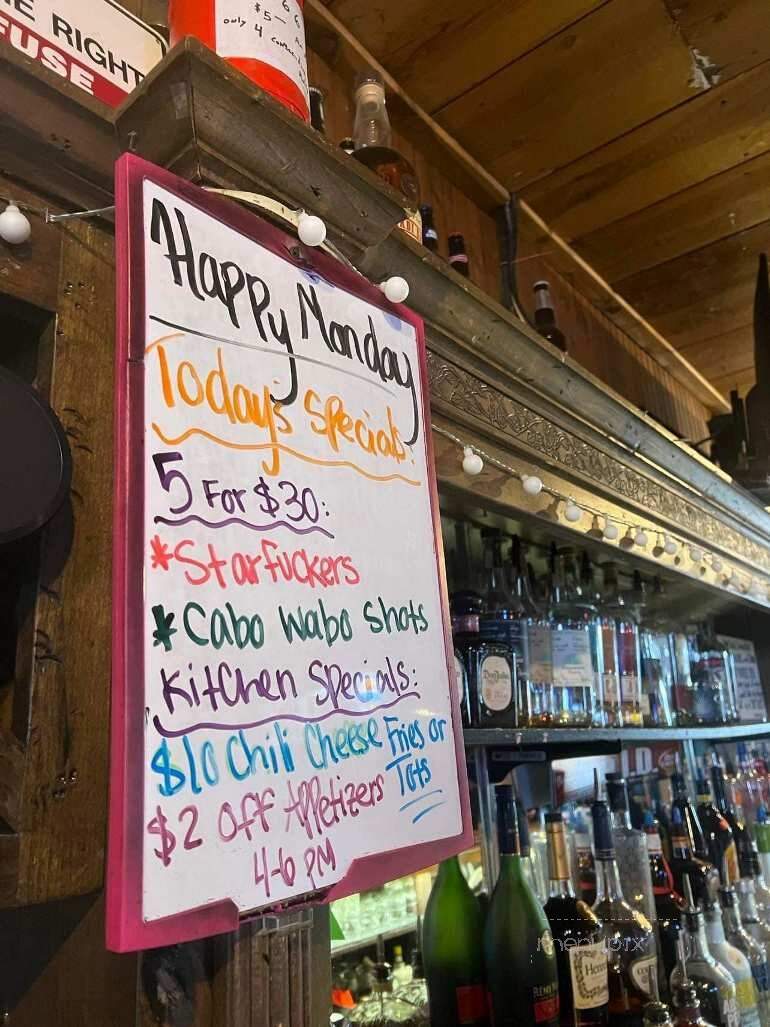 E RIGHT
FUSE
$5-
only 4
Happy Monday
Today's Specials:
5 For $30:
*Starfuckers
*Cabo Wabo Shots
Kitchen Specials:
$10 Chili Cheese Fries or
Tots
$2 off Appetizers
4-6 PM
Don Julio
Henn
menupix